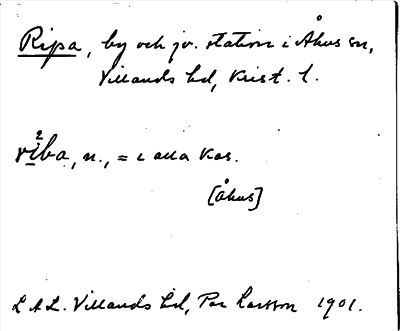 Ripa, by och jv. station i Åhus sn,
Villands hd, Krist. l.
2
viba, n., = i alla kas.
[Åhus]
L.A.L. Villands hd, Per Larsson 1901.